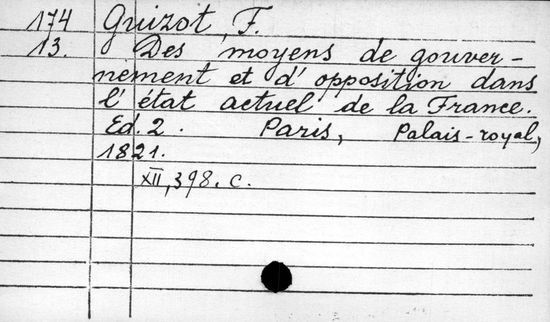 174 Guizot, F.
13. Des moyens de gouver-
nement et d'opposition dans
l'état actuel de la France.
Ed. 2. Paris, Palais-royal,
1821.
XII, 398. c.